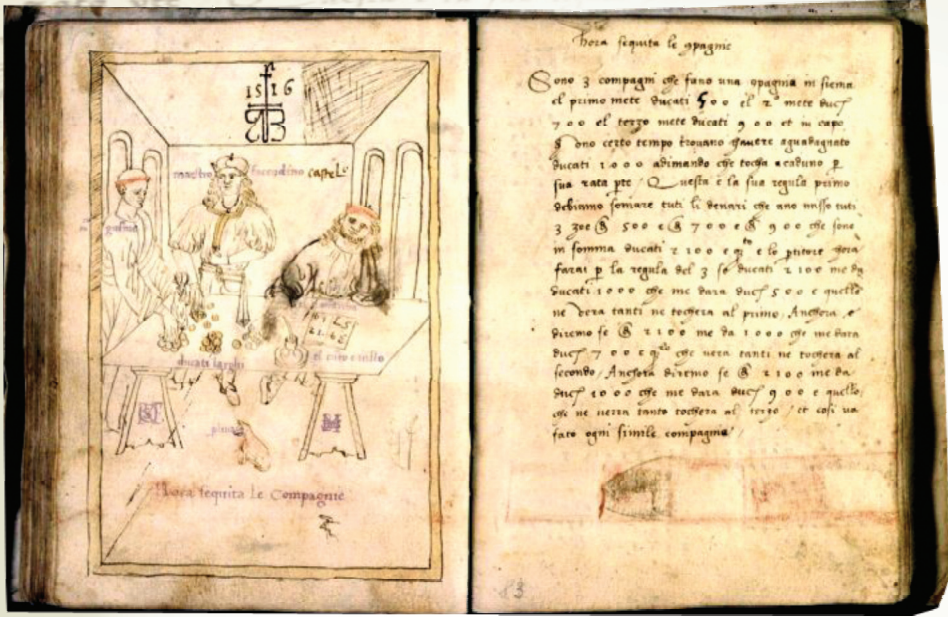 1516
maestro faccudino castelo
guimo
ducati larghi
el civo e lallo
Hora sequita le Compagnie
Hora sequita le 9pagnie
Sono 3 compagni che fano una 9pagnia in siema
el primo mete ducati 500 el 2º mete duc
700 el terzo mete ducati 900 et in capo
dono certo tempo trovano havere aguadagnato
ducati 1000 adimando che tocha a caduno p
sua rata pte / Questa e la sua regula primo
debiamo somare tuti li denari che ano misso tuti
3 zoe 500 e 700 e 900 che sono
in somma ducati 2100 e qto e lo ptitore hora
farai p la regula del 3 se ducati 2100 me da
ducati 1000 che me dara duc 500 e quello
ne vera tanti ne tochera al primo / Anchora
diremo se 2100 me da 1000 che me dara
duc 700 e che vera tanti ne tochera al
secondo / Anchora diremo se 2100 me da
duc 1000 che me dara duc 900 e quello
che ne verra tanto tochera al terzo / et cosi va
fato ogni simile compagnia /
83